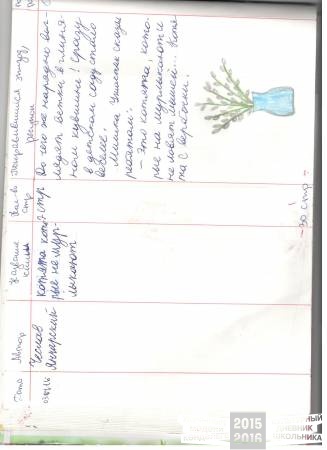 Дата
Автор
Название
книги
Кол-во
стр
Понравившийся эпизод,
рисунок
Чеслав
Янчарский
Котята кото-
рые не мур-
лыкают
стр
До чего же нарядно выг-
лядят ветки в глиня-
ном кувшине! Сразу
в детском саду стало
веселее.
Мишка Ушастик сказал
ребятам:
- это котята, кото-
рые не мурлыкают и
не ловят мышей... Котя-
та с вербочки.
~30 стр
2015
2016
ДНЕВНИК
ШКОЛЬНИКА